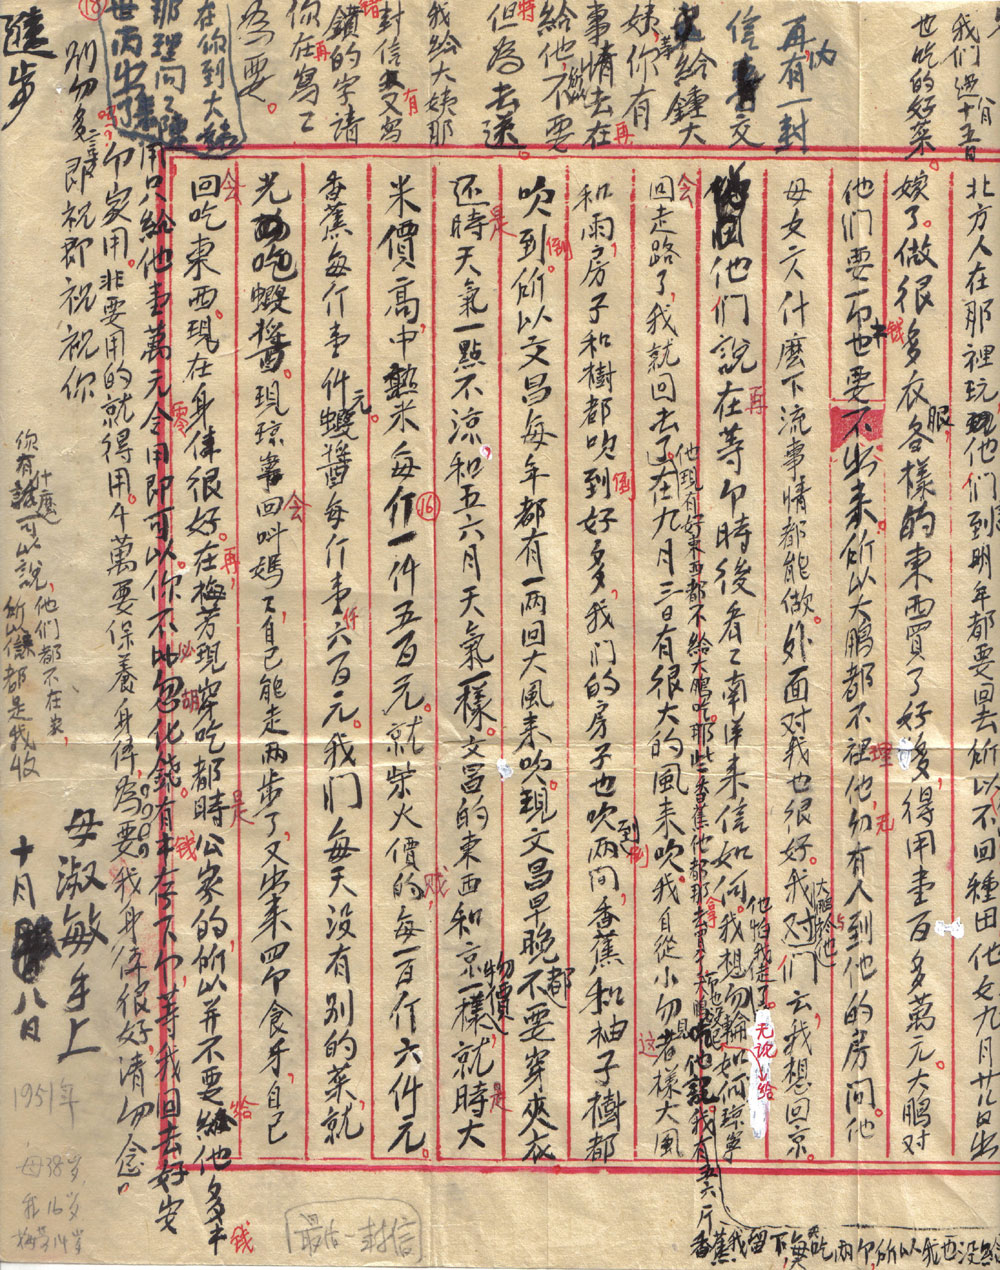 北方人在那裡玩他们到明年都要回去所以不回種田他女九月廿八日出
嫁了。做很多衣服各樣的東西買了好多，得用壹百多萬元。大鵬对
他们要一也要不出来。所以大鵬都不裡他，勿有人到他的房间。他
母女六什麽下流事情都能做。外面对我也很好。我对们云，我想回京
他们說在等時後看之南洋来信如何。我想勿論如何琼寧
回走路了，我就回去了。在九月三日有很大的風来吹。我自從小勿見者樣大風
和雨，房子和樹都吹到好多。我们的房子也吹到两间，香蕉和柚子樹都
吹到。所以文昌每年都有一两回大風来吹。現文昌早晚都不要穿夾衣
还時天氣一點不凉，和五六月天氣一樣。文昌的東西和京物價一樣，就時大
米價高中熟米每斤一件五百元。就柴火價的每一百斤六件元。
香蕉每斤壹件元蝦醬每斤壹六百元。我们每天没有别的菜，就
光吃蝦醬。現琼寧回叫媽了，自己能走两步了，又出来四食牙，自己
回吃東西。現在身体很好。在梅芳現穿吃都時公家的，所以并不要给他多
用只給他壹萬元令用即可以。你不比忽化錢。有本存下，等我回去好安
家用。非要用的就得用。千萬要保養身体，為要。我身体很好，請勿念。
别勿多談即祝即祝祝你
進步
母淑敏手上
十月八日
我们過八月十五日
也吃的好菜。
再有一封
信交
給鍾大
姨，你有
事情去在
給他，不要
但為去送。
我給大姨那
封信又有寫
鎖的字請
你在寫了
為要。
在你到大姨
那理问之陳
世丙出了集
你有什麽話可以說，他们都不在家，
所以信都是我收
他現有好東西都不给大鵬吃，那些香蕉他都那去賣
他怕我走了
大鵬於他
他說我有五六斤
香蕉我留下，每天吃两，所以我也没给
再
再
特
错
有
再
会
再
会
倒
倒
倒
是
⑯
会
仟
再，
是
零
必
胡
钱
钱
服
理
无
这
拿
贱
是
给
钱
无说
给
1951年
母38岁
我16岁
梅芳14岁
最后一封信